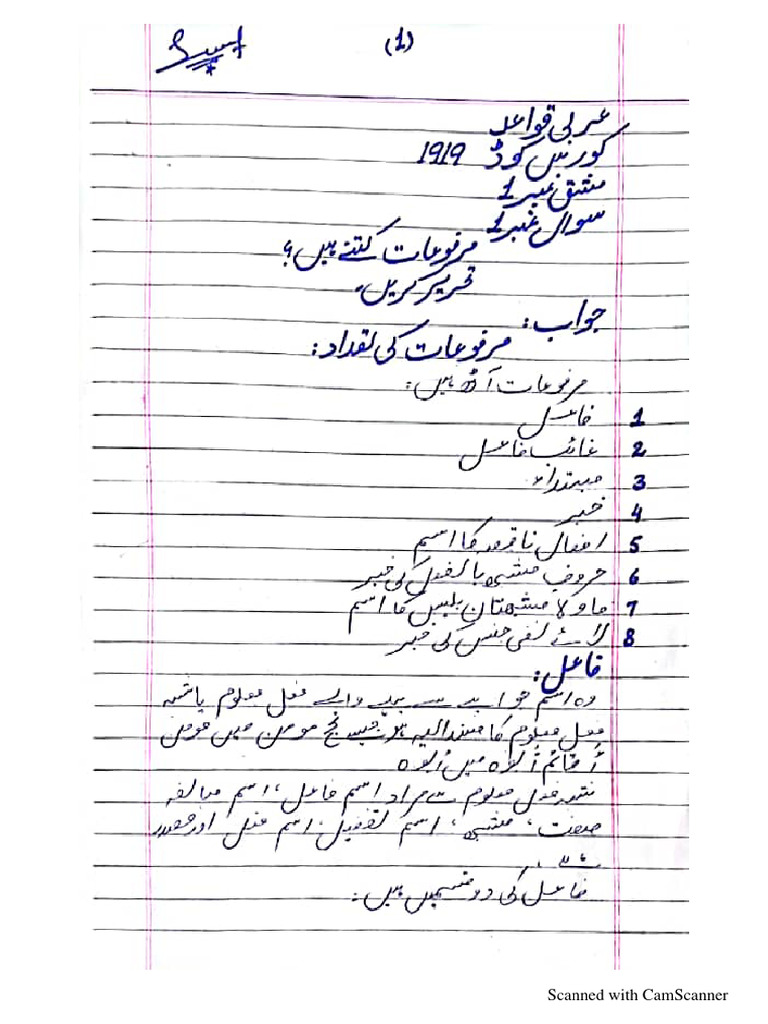 (1)
عربی قواعد
کورس کوڈ 1919
مشق نمبر 1
سوال نمبر 1
مرفوعات کتنے ہیں؟
تحریر کریں۔
جواب:
مرفوعات کی تعداد:
مرفوعات آٹھ ہیں:
1 فاعل
2 نائب فاعل
3 مبتداء
4 خبر
5 افعال ناقصہ کا اسم
6 حروف مشبہ بالفعل کی خبر
7 ما ولا مشبھتان بلیس کا اسم
8 لائے نفی جنس کی خبر
فاعل:
وہ اسم جو اپنے سے پہلے والے فعل معلوم یا شبہ
فعل معلوم کا مسند الیہ ہو جیسے مومن میں مومن
أ قائم أبوہ میں أبوہ
شبہ فعل معلوم سے مراد اسم فاعل، اسم مبالغہ
صفت، مشبہ، اسم تفضیل، اسم فعل اور مصدر
فاعل کی دو قسمیں ہیں:
Scanned with CamScanner